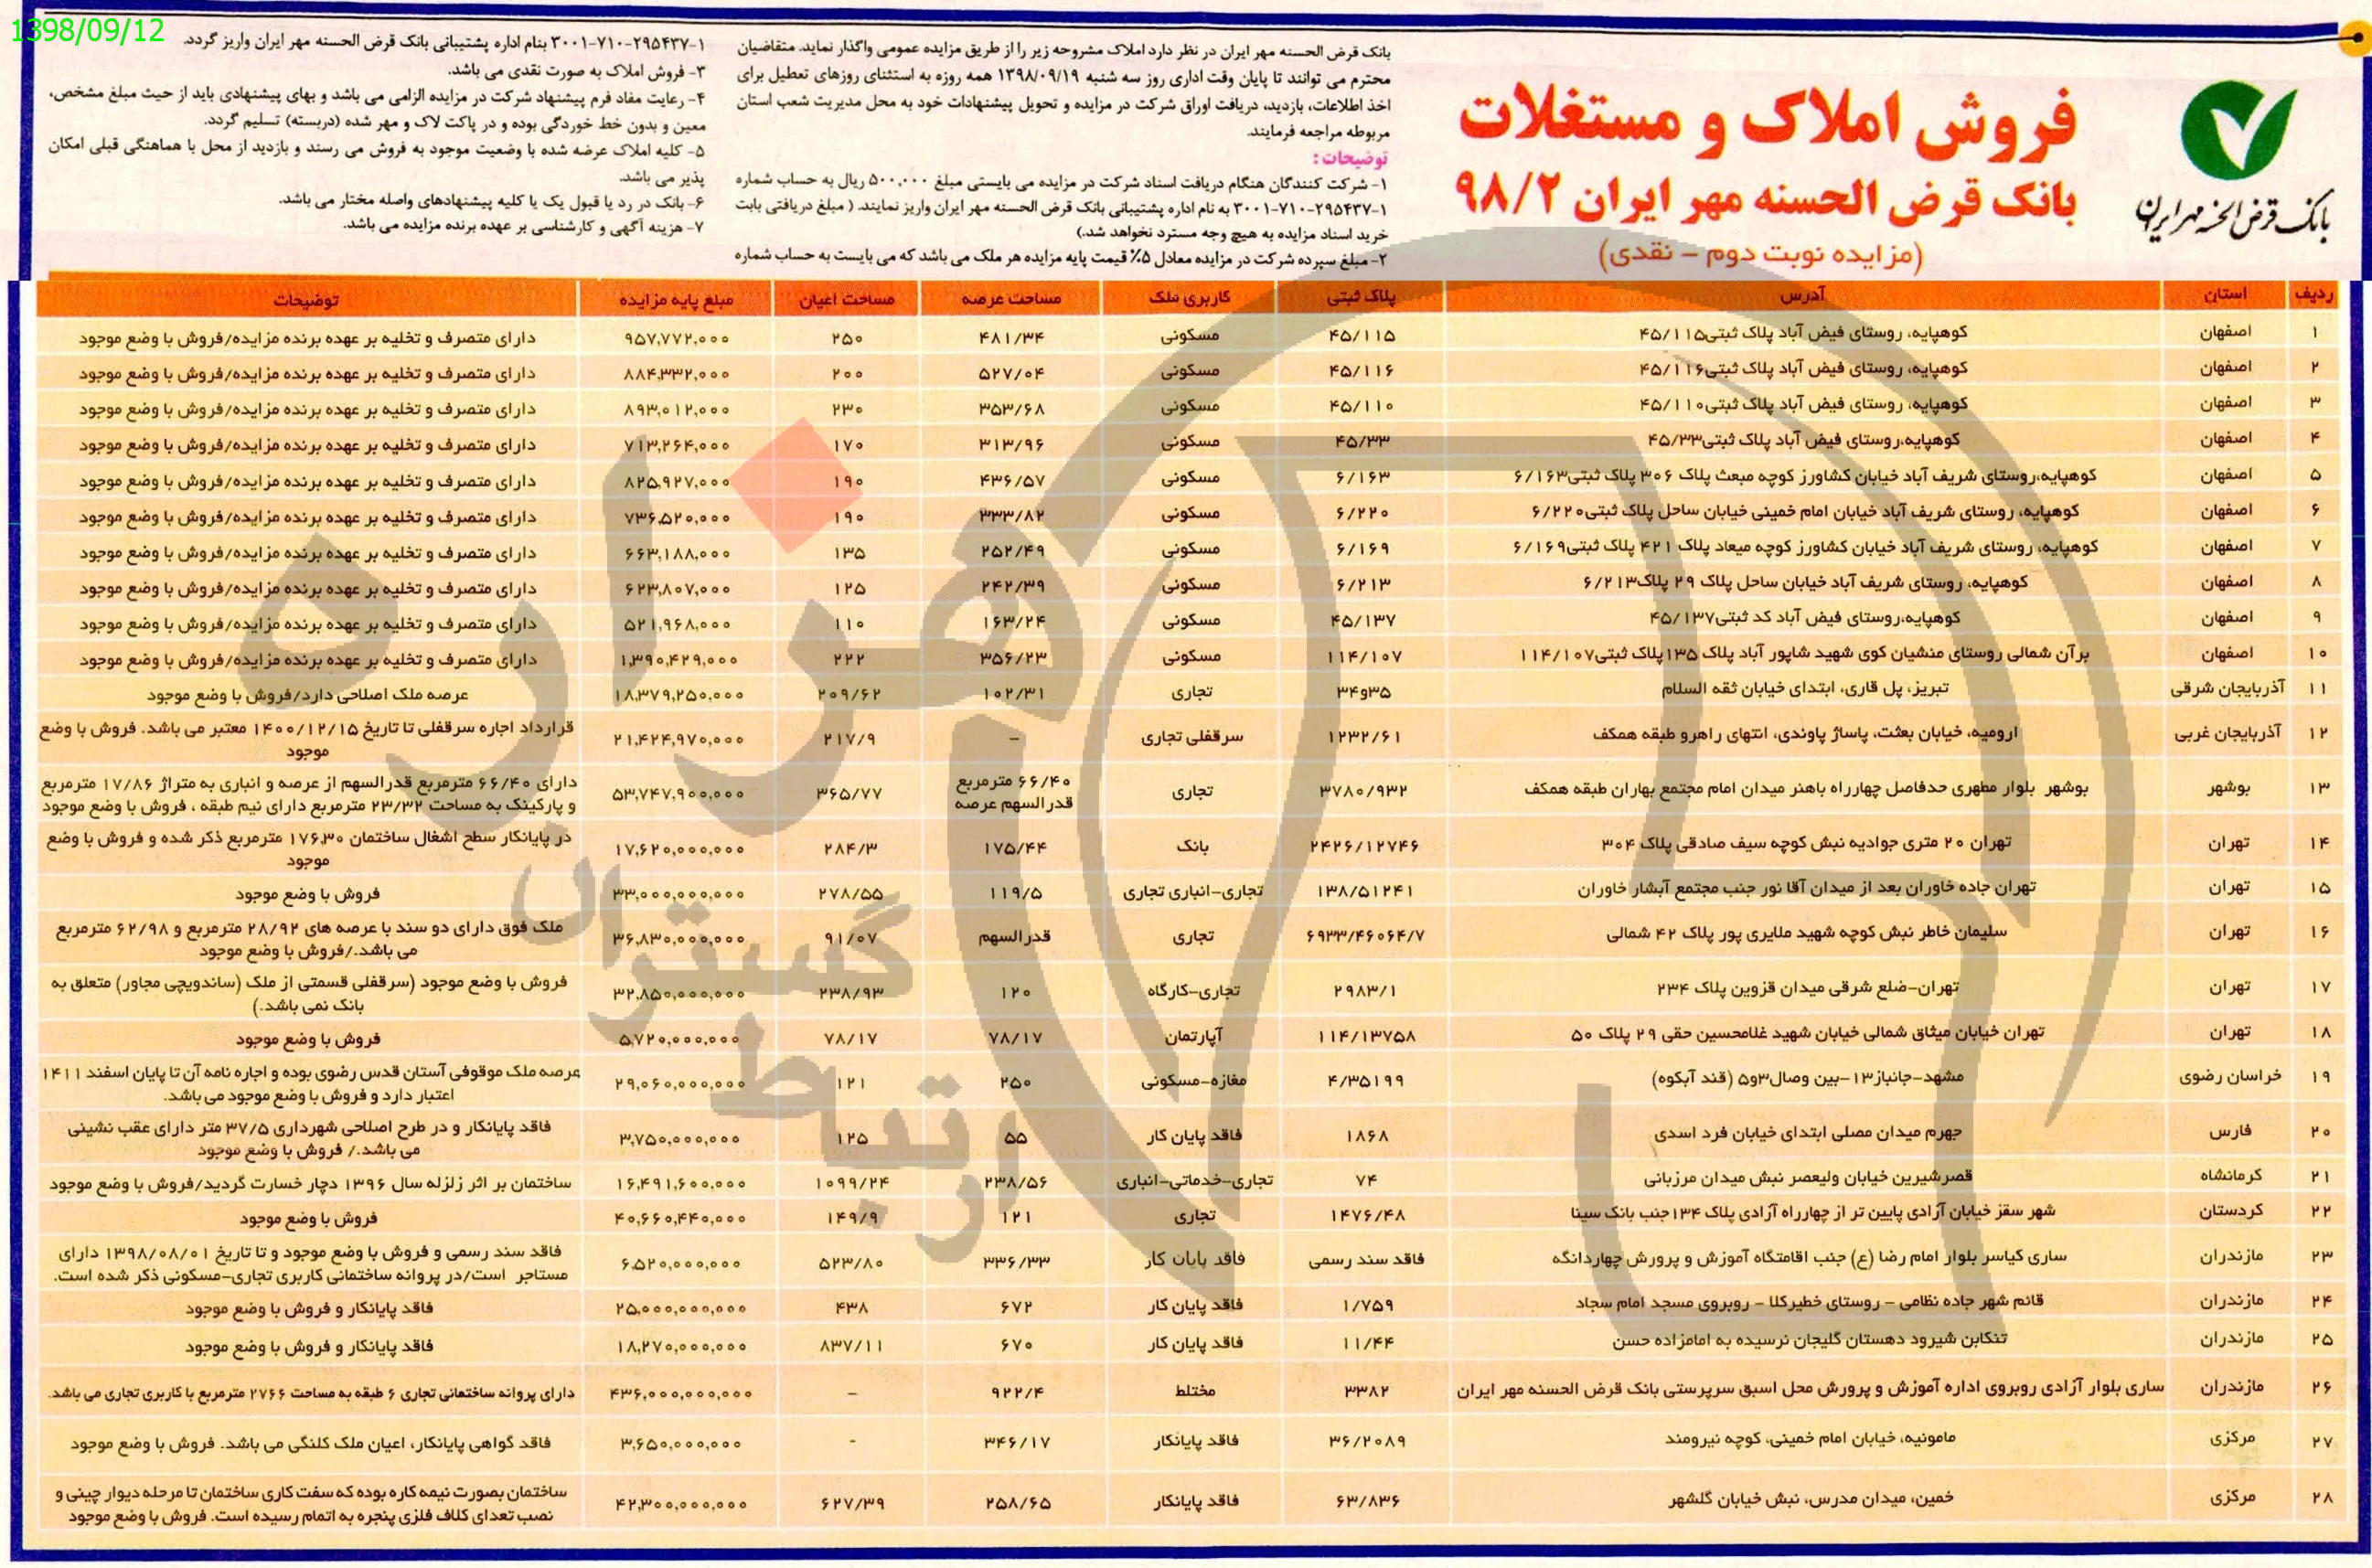 1398/09/12
بانک قرض الحسنه مهر ایران
فروش املاک و مستغلات
بانک قرض الحسنه مهر ایران ۹۸/۲
(مزایده نوبت دوم – نقدی)
بانک قرض الحسنه مهر ایران در نظر دارد املاک مشروحه زیر را از طریق مزایده عمومی واگذار نماید. متقاضیان
محترم می توانند تا پایان وقت اداری روز سه شنبه ۱۳۹۸/۰۹/۱۹ همه روزه به استثنای روزهای تعطیل برای
اخذ اطلاعات، بازدید، دریافت اوراق شرکت در مزایده و تحویل پیشنهادات خود به محل مدیریت شعب استان
مربوطه مراجعه فرمایند.
توضیحات :
۱- شرکت کنندگان هنگام دریافت اسناد شرکت در مزایده می بایستی مبلغ ۵۰۰,۰۰۰ ریال به حساب شماره
۱-۲۹۵۴۳۷-۷۱۰-۳۰۰۱ به نام اداره پشتیبانی بانک قرض الحسنه مهر ایران واریز نمایند. ( مبلغ دریافتی بابت
خرید اسناد مزایده به هیچ وجه مسترد نخواهد شد.)
۲- مبلغ سپرده شرکت در مزایده معادل ۵٪ قیمت پایه مزایده هر ملک می باشد که می بایست به حساب شماره
۱-۲۹۵۴۳۷-۷۱۰-۳۰۰۱ بنام اداره پشتیبانی بانک قرض الحسنه مهر ایران واریز گردد.
۳- فروش املاک به صورت نقدی می باشد.
۴- رعایت مفاد فرم پیشنهاد شرکت در مزایده الزامی می باشد و بهای پیشنهادی باید از حیث مبلغ مشخص،
معین و بدون خط خوردگی بوده و در پاکت لاک و مهر شده (دربسته) تسلیم گردد.
۵- کلیه املاک عرضه شده با وضعیت موجود به فروش می رسند و بازدید از محل با هماهنگی قبلی امکان
پذیر می باشد.
۶- بانک در رد یا قبول یک یا کلیه پیشنهادهای واصله مختار می باشد.
۷- هزینه آگهی و کارشناسی بر عهده برنده مزایده می باشد.
ردیف استان آدرس پلاک ثبتی کاربری ملک مساحت عرصه مساحت اعیان مبلغ پایه مزایده توضیحات
۱ اصفهان کوهپایه، روستای فیض آباد پلاک ثبتی۴۵/۱۱۵ ۴۵/۱۱۵ مسکونی ۴۸۱/۳۴ ۲۵۰ ۹۵۷,۷۷۲,۰۰۰ دارای متصرف و تخلیه بر عهده برنده مزایده/فروش با وضع موجود
۲ اصفهان کوهپایه، روستای فیض آباد پلاک ثبتی۴۵/۱۱۶ ۴۵/۱۱۶ مسکونی ۵۲۷/۰۴ ۲۰۰ ۸۸۴,۳۳۲,۰۰۰ دارای متصرف و تخلیه بر عهده برنده مزایده/فروش با وضع موجود
۳ اصفهان کوهپایه، روستای فیض آباد پلاک ثبتی۴۵/۱۱۰ ۴۵/۱۱۰ مسکونی ۳۵۳/۶۸ ۲۳۰ ۸۹۳,۰۱۲,۰۰۰ دارای متصرف و تخلیه بر عهده برنده مزایده/فروش با وضع موجود
۴ اصفهان کوهپایه،روستای فیض آباد پلاک ثبتی۴۵/۳۳ ۴۵/۳۳ مسکونی ۳۱۳/۹۶ ۱۷۰ ۷۱۳,۲۶۴,۰۰۰ دارای متصرف و تخلیه بر عهده برنده مزایده/فروش با وضع موجود
۵ اصفهان کوهپایه،روستای شریف آباد خیابان کشاورز کوچه مبعث پلاک ۳۰۶ پلاک ثبتی۶/۱۶۳ ۶/۱۶۳ مسکونی ۴۳۶/۵۷ ۱۹۰ ۸۲۵,۹۲۷,۰۰۰ دارای متصرف و تخلیه بر عهده برنده مزایده/فروش با وضع موجود
۶ اصفهان کوهپایه، روستای شریف آباد خیابان امام خمینی خیابان ساحل پلاک ثبتی۶/۲۲۰ ۶/۲۲۰ مسکونی ۳۳۳/۸۲ ۱۹۰ ۷۳۶,۵۲۰,۰۰۰ دارای متصرف و تخلیه بر عهده برنده مزایده/فروش با وضع موجود
۷ اصفهان کوهپایه، روستای شریف آباد خیابان کشاورز کوچه میعاد پلاک ۴۲۱ پلاک ثبتی۶/۱۶۹ ۶/۱۶۹ مسکونی ۲۵۲/۴۹ ۱۳۵ ۶۶۳,۱۸۸,۰۰۰ دارای متصرف و تخلیه بر عهده برنده مزایده/فروش با وضع موجود
۸ اصفهان کوهپایه، روستای شریف آباد خیابان ساحل پلاک ۲۹ پلاک۶/۲۱۳ ۶/۲۱۳ مسکونی ۲۴۲/۳۹ ۱۲۵ ۶۲۳,۸۰۷,۰۰۰ دارای متصرف و تخلیه بر عهده برنده مزایده/فروش با وضع موجود
۹ اصفهان کوهپایه،روستای فیض آباد کد ثبتی۴۵/۱۳۷ ۴۵/۱۳۷ مسکونی ۱۶۳/۲۴ ۱۱۰ ۵۲۱,۹۶۸,۰۰۰ دارای متصرف و تخلیه بر عهده برنده مزایده/فروش با وضع موجود
۱۰ اصفهان برآن شمالی روستای منشیان کوی شهید شاپور آباد پلاک ۱۳۵پلاک ثبتی۱۱۴/۱۰۷ ۱۱۴/۱۰۷ مسکونی ۳۵۶/۲۳ ۲۲۲ ۱,۳۹۰,۴۲۹,۰۰۰ دارای متصرف و تخلیه بر عهده برنده مزایده/فروش با وضع موجود
۱۱ آذربایجان شرقی تبریز، پل قاری، ابتدای خیابان ثقه السلام ۳۴و۳۵ تجاری ۱۰۲/۳۱ ۲۰۹/۶۲ ۱۸,۳۷۹,۲۵۰,۰۰۰ عرصه ملک اصلاحی دارد/فروش با وضع موجود
۱۲ آذربایجان غربی ارومیه، خیابان بعثت، پاساژ پاوندی، انتهای راهرو طبقه همکف ۱۲۳۲/۶۱ سرقفلی تجاری – ۲۱۷/۹ ۲۱,۴۲۴,۹۷۰,۰۰۰ قرارداد اجاره سرقفلی تا تاریخ ۱۴۰۰/۱۲/۱۵ معتبر می باشد. فروش با وضع
موجود
۱۳ بوشهر بوشهر بلوار مطهری حدفاصل چهارراه باهنر میدان امام مجتمع بهاران طبقه همکف ۳۷۸۰/۹۳۲ تجاری ۶۶/۴۰ مترمربع قدرالسهم عرصه ۳۶۵/۷۷ ۵۳,۷۴۷,۹۰۰,۰۰۰ دارای ۶۶/۴۰ مترمربع قدرالسهم از عرصه و انباری به متراژ ۱۷/۸۶ مترمربع
و پارکینگ به مساحت ۲۳/۳۲ مترمربع دارای نیم طبقه ، فروش با وضع موجود
۱۴ تهران تهران ۲۰ متری جوادیه نبش کوچه سیف صادقی پلاک ۳۰۴ ۲۴۲۶/۱۲۷۴۶ بانک ۱۷۵/۴۴ ۲۸۴/۳ ۱۷,۶۲۰,۰۰۰,۰۰۰ در پایانکار سطح اشغال ساختمان ۱۷۶,۳۰ مترمربع ذکر شده و فروش با وضع
موجود
۱۵ تهران تهران جاده خاوران بعد از میدان آقا نور جنب مجتمع آبشار خاوران ۱۳۸/۵۱۲۴۱ تجاری–انباری تجاری ۱۱۹/۵ ۲۷۸/۵۵ ۳۳,۰۰۰,۰۰۰,۰۰۰ فروش با وضع موجود
۱۶ تهران سلیمان خاطر نبش کوچه شهید ملایری پور پلاک ۴۲ شمالی ۶۹۳۳/۴۶۰۶۴/۷ تجاری قدرالسهم ۹۱/۰۷ ۳۶,۸۳۰,۰۰۰,۰۰۰ ملک فوق دارای دو سند با عرصه های ۲۸/۹۲ مترمربع و ۶۲/۹۸ مترمربع
می باشد./فروش با وضع موجود
۱۷ تهران تهران–ضلع شرقی میدان قزوین پلاک ۲۳۴ ۲۹۸۳/۱ تجاری–کارگاه ۱۲۰ ۲۳۸/۹۳ ۳۲,۸۵۰,۰۰۰,۰۰۰ فروش با وضع موجود (سرقفلی قسمتی از ملک (ساندویچی مجاور) متعلق به
بانک نمی باشد.)
۱۸ تهران تهران خیابان میثاق شمالی خیابان شهید غلامحسین حقی ۲۹ پلاک ۵۰ ۱۱۴/۱۳۷۵۸ آپارتمان ۷۸/۱۷ ۷۸/۱۷ ۵,۷۲۰,۰۰۰,۰۰۰ فروش با وضع موجود
۱۹ خراسان رضوی مشهد–جانباز۱۳–بین وصال۳و۵ (قند آبکوه) ۴/۳۵۱۹۹ مغازه–مسکونی ۲۵۰ ۱۲۱ ۲۹,۰۶۰,۰۰۰,۰۰۰ عرصه ملک موقوفی آستان قدس رضوی بوده و اجاره نامه آن تا پایان اسفند ۱۴۱۱
اعتبار دارد و فروش با وضع موجود می باشد.
۲۰ فارس جهرم میدان مصلی ابتدای خیابان فرد اسدی ۱۸۶۸ فاقد پایان کار ۵۵ ۱۲۵ ۳,۷۵۰,۰۰۰,۰۰۰ فاقد پایانکار و در طرح اصلاحی شهرداری ۳۷/۵ متر دارای عقب نشینی
می باشد./ فروش با وضع موجود
۲۱ کرمانشاه قصرشیرین خیابان ولیعصر نبش میدان مرزبانی ۷۴ تجاری–خدماتی–انباری ۲۳۸/۵۶ ۱۰۹۹/۲۴ ۱۶,۴۹۱,۶۰۰,۰۰۰ ساختمان بر اثر زلزله سال ۱۳۹۶ دچار خسارت گردید/فروش با وضع موجود
۲۲ کردستان شهر سقز خیابان آزادی پایین تر از چهارراه آزادی پلاک ۱۳۴جنب بانک سینا ۱۴۷۶/۴۸ تجاری ۱۲۱ ۱۴۹/۹ ۴۰,۶۶۰,۴۴۰,۰۰۰ فروش با وضع موجود
۲۳ مازندران ساری کیاسر بلوار امام رضا (ع) جنب اقامتگاه آموزش و پرورش چهاردانگه فاقد سند رسمی فاقد پایان کار ۳۳۶/۳۳ ۵۲۳/۸۰ ۶,۵۲۰,۰۰۰,۰۰۰ فاقد سند رسمی و فروش با وضع موجود و تا تاریخ ۱۳۹۸/۰۸/۰۱ دارای
مستاجر است/در پروانه ساختمانی کاربری تجاری–مسکونی ذکر شده است.
۲۴ مازندران قائم شهر جاده نظامی – روستای خطیرکلا – روبروی مسجد امام سجاد ۱/۷۵۹ فاقد پایان کار ۶۷۲ ۴۳۸ ۲۵,۰۰۰,۰۰۰,۰۰۰ فاقد پایانکار و فروش با وضع موجود
۲۵ مازندران تنکابن شیرود دهستان گلیجان نرسیده به امامزاده حسن ۱۱/۴۴ فاقد پایان کار ۶۷۰ ۸۳۷/۱۱ ۱۸,۲۷۰,۰۰۰,۰۰۰ فاقد پایانکار و فروش با وضع موجود
۲۶ مازندران ساری بلوار آزادی روبروی اداره آموزش و پرورش محل اسبق سرپرستی بانک قرض الحسنه مهر ایران ۳۳۸۲ مختلط ۹۲۲/۴ – ۴۳۶,۰۰۰,۰۰۰,۰۰۰ دارای پروانه ساختمانی تجاری ۶ طبقه به مساحت ۲۷۶۶ مترمربع با کاربری تجاری می باشد.
۲۷ مرکزی مامونیه، خیابان امام خمینی، کوچه نیرومند ۳۶/۲۰۸۹ فاقد پایانکار ۳۴۶/۱۷ - ۳,۶۵۰,۰۰۰,۰۰۰ فاقد گواهی پایانکار، اعیان ملک کلنگی می باشد. فروش با وضع موجود
۲۸ مرکزی خمین، میدان مدرس، نبش خیابان گلشهر ۶۳/۸۳۶ فاقد پایانکار ۲۵۸/۶۵ ۶۲۷/۳۹ ۴۲,۳۰۰,۰۰۰,۰۰۰ ساختمان بصورت نیمه کاره بوده که سفت کاری ساختمان تا مرحله دیوار چینی و
نصب تعدای کلاف فلزی پنجره به اتمام رسیده است. فروش با وضع موجود
هزاره
گستران
ارتباط